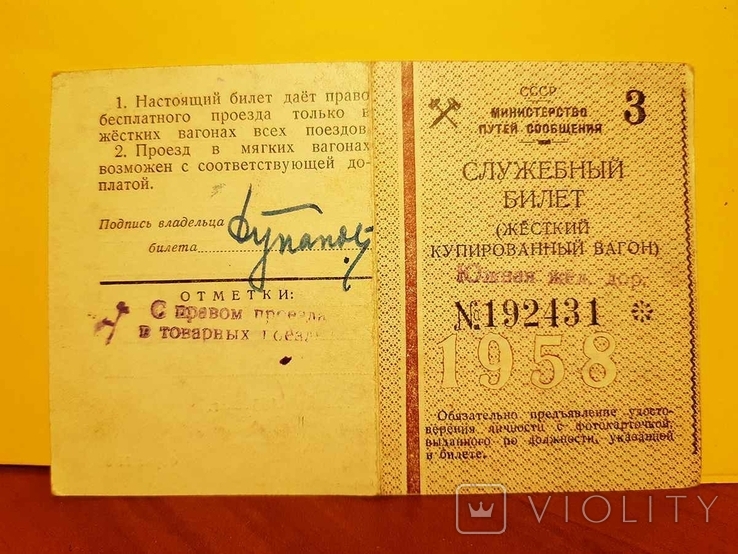 1. Настоящий билет даёт право
бесплатного проезда только в
жёстких вагонах всех поездов
2. Проезд в мягких вагонах
возможен с соответствующей до-
платой.
Подпись владельца
билета
ОТМЕТКИ:
С правом проезда
в товарных поезд
СССР
МИНИСТЕРСТВО
ПУТЕЙ СООБЩЕНИЯ
3
СЛУЖЕБНЫЙ
БИЛЕТ
(ЖЁСТКИЙ
КУПИРОВАННЫЙ ВАГОН)
Южная жел. дор.
№192431 *
1958
Обязательно предъявление удосто-
верения личности с фотокарточкой,
выданного по должности, указанной
в билете.
VIOLITY